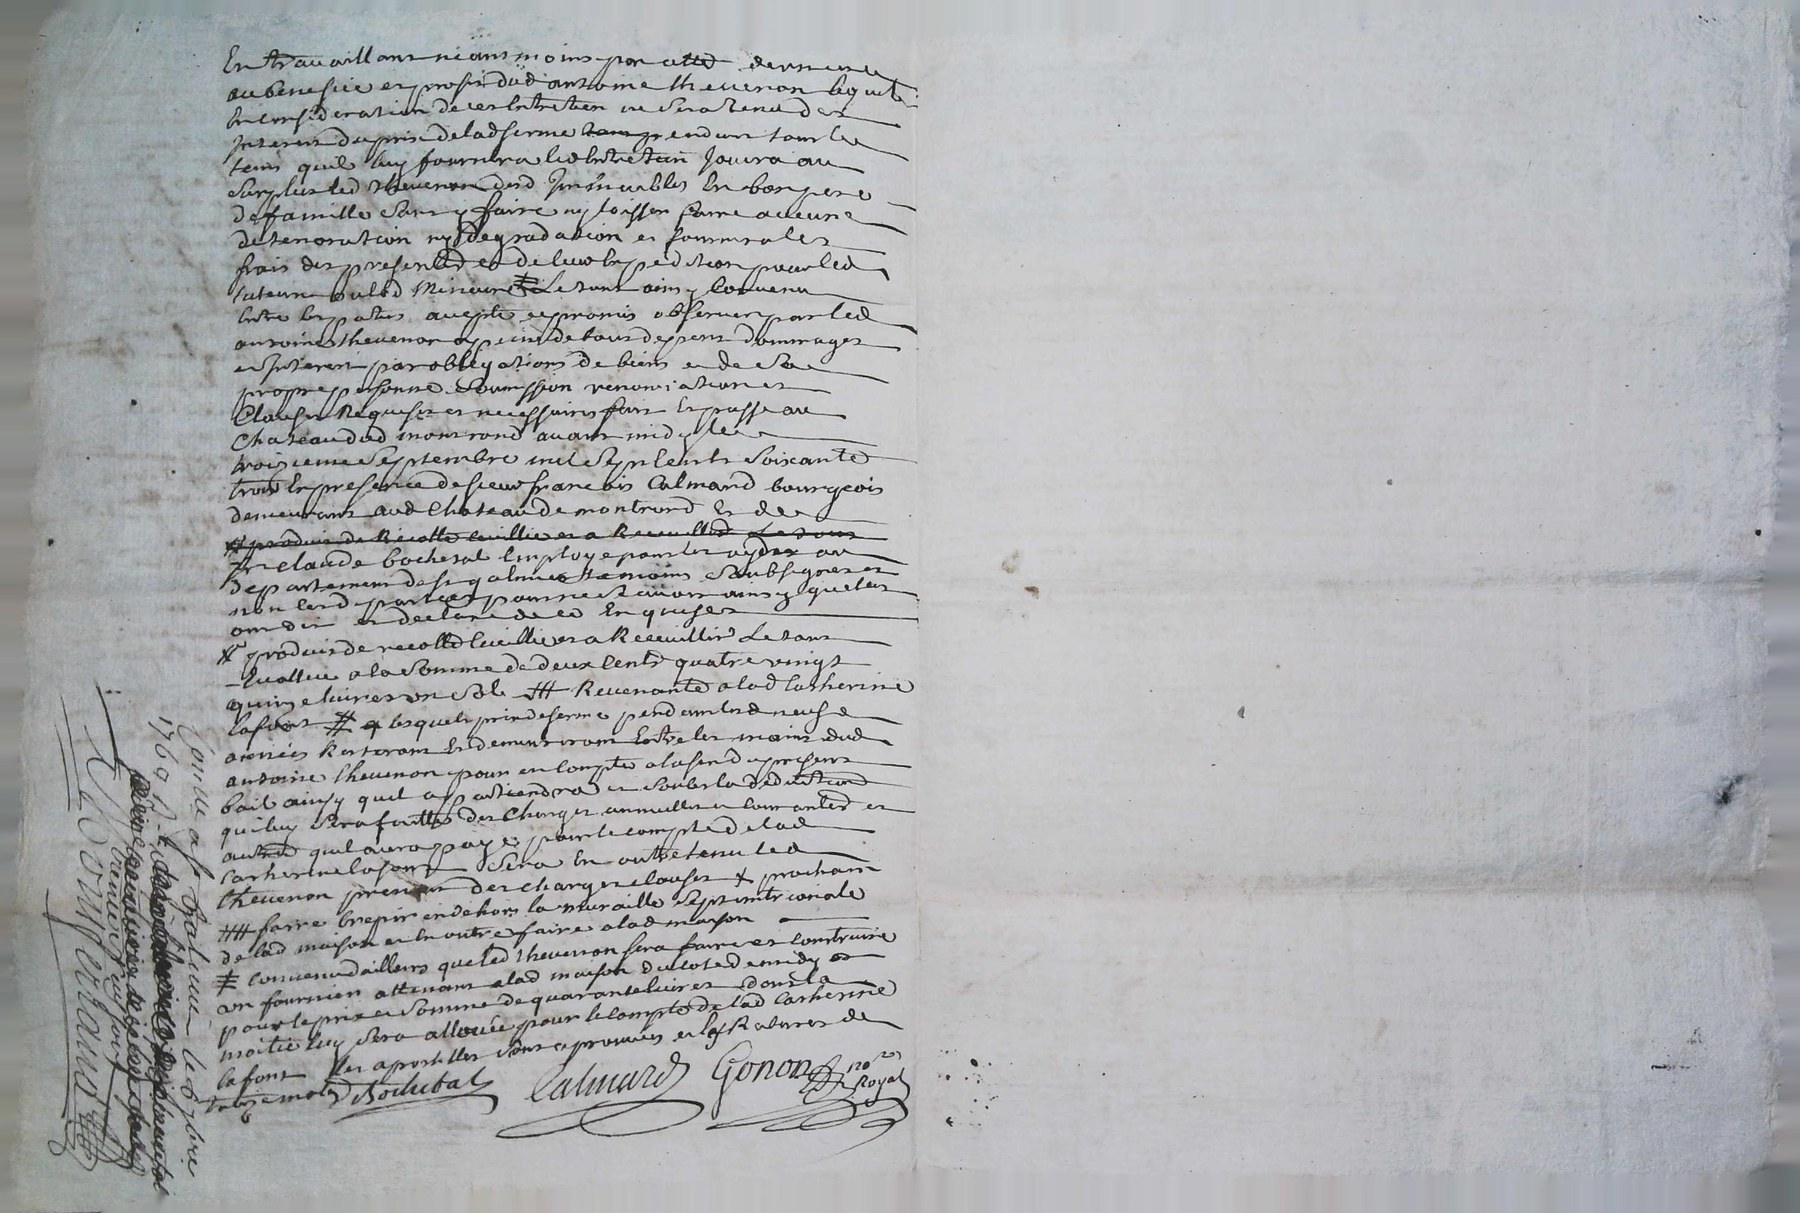 En travaillant neantmoins par cette derniere
au benefice et profit dud antoine thevenon lequel
En consideration de cet Entretien ne sera tenu des
Interest du prix de lad ferme pendant tout le
tems quil luy fournira led Entretien Jouira au
Surplus led thevenon desd Immeubles En bon pere
de famille Sans y faire ny loisser faire aucune
deterioration ny degradation et fournira les
frais des presentes et de leur Expedition pour led
tuteur oulad Mineure Le tout ainsy Convenu
Entre les parties accepté et promis observer par led
antoine thevenon a peine de tous depens dommages
et Interest par obligations de biens et de Sa
propre personne Soumission renonciation et
Clauses Requises et necessaires fait Et passé au
Chateau dud montrond avant midy le
troisieme Septembre mil Sept Cents Soixante
trois En presence de sieur francois Calmard bourgeois
demeurant aud Chateau de montrond Et de
produit de Recolte cuillie et a Recueillir Le tout
Sr claude bochetal Employé pour les aydes au
departement de st galmier temoins Soubsignes et
non lesd parties pour ne Scavoir ainsy quelles
ont dit et declaré de ce Enquises
# produit de recolte Cueillie et a Receuillir Le tout
Evallué a la Somme de deux Cents quatre vingt
quinze livres un Sol ### Revenante a lad Catherine
lafont # lesquels prix de ferme pendant lesd neuf
années Resteront Et demeureront Entre les mains dud
antoine thevenon pour en Compte a la fin du present
bail ainsy quil apartiendra et Soubs la deduction
qui luy Sera faitte des Charges annuelles et
autres quil aura payé pour le compte de lad
Catherine lafont Sera En outre tenu led
thevenon preneur des charges clauses
### faire Crepir en dehors la muraille Septentrionale
de lad maison et En outre faire a lad maison
# convenu dailleurs que led thevenon fera faire et Construire
un fournier attenant a lad maison du coté de midy
pour le prix et Somme de quarante livres dont la
moitié luy Sera allouée pour le compte de lad Catherine
lafont les apostilles Sont aprouvées et les Ratures de
mots
Bochetal Calmard Gonon no.re Royal
6
Controllé a St galmier le 6 7bre
1763